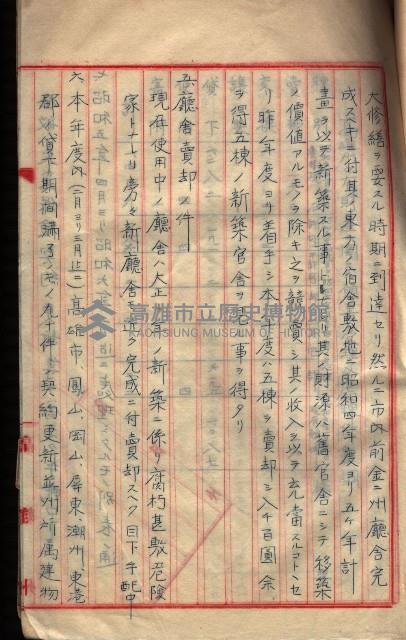 大修繕ヲ要スル時期ニ到達セリ然ルニ市内前金ニ州廳舍完
成スベキニ付其ノ東方ノ宿舍敷地ニ昭和四年度ヨリ五ケ年計
畫ヲ以テ新築スル事トシ其ノ財源ハ舊官舍ニシテ移築
ノ價値アルモノヲ除キ之ヲ競賣シ其ノ收入ヲ以テ充當スルコトトセ
リ昨年度ヨリ着手シ本年度ハ五棟ヲ賣却シ入千百圓余
ヲ得五棟ノ新築官舍ヲ 事ヲ得タリ
五、廳舍賣却ノ件
現在使用中ノ廳舍ハ大正 年ノ新築ニ係リ腐朽甚敷危險
家トナレリ旁々新廳舍モ近ク完成ニ付賣却スベク目下手配中
六、本年度内(一月ヨリ三月止ニ)高雄市、鳳山、岡山、屏東、潮州、東港
郡ノ貸下期間滿了ノモノ九十件ノ契約更新並州所属建物
高雄市立歷史博物館
KAOHSIUNG MUSEUM OF HISTORY